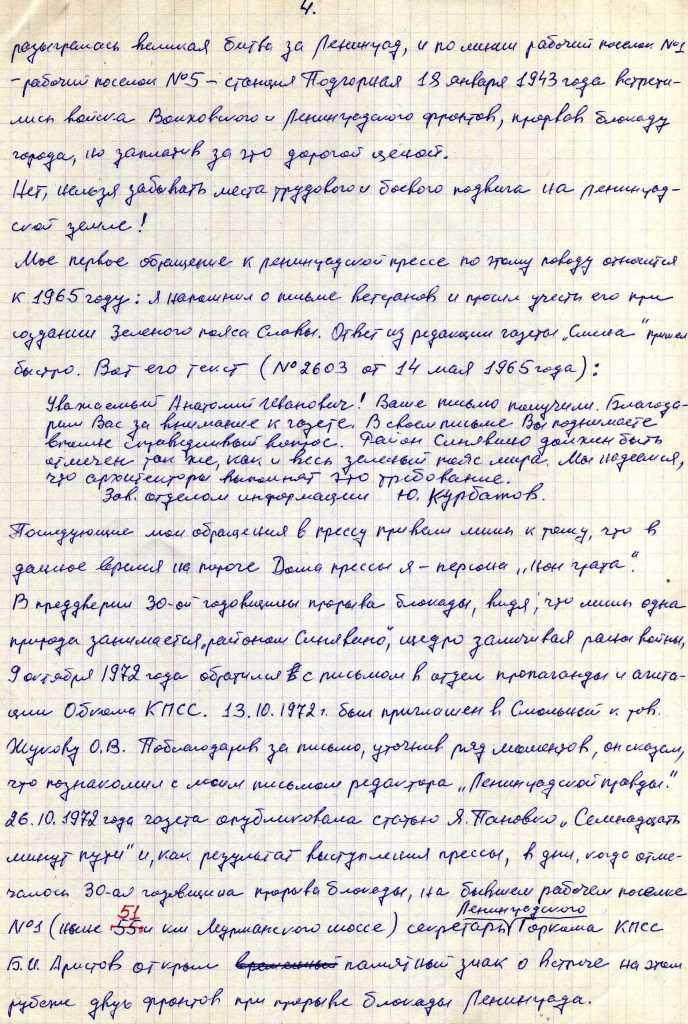 4.
разыгралась великая битва за Ленинград, и по линии рабочий поселок №1
– рабочий поселок №5 – станция Подгорная 18 января 1943 года встрети-
лись войска Волховского и Ленинградского фронтов, прорвав блокаду
города, но заплатив за это дорогой ценой.
Нет, нельзя забывать места трудового и боевого подвига на Ленинград-
ской земле!
Мое первое обращение к ленинградской прессе по этому поводу относится
к 1965 году: я напомнил о письме ветеранов и просил учесть его при
создании Зеленого пояса Славы. Ответ из редакции газеты „Смена" пришел
быстро. Вот его текст (№2603 от 14 мая 1965 года):
Уважаемый Анатолий Иванович! Ваше письмо получили. Благода-
рим Вас за внимание к газете. В своем письме Вы поднимаете
вполне справедливый вопрос. Район Синявино должен быть
отмечен так же, как и весь зеленый пояс мира. Мы надеемся,
что архитекторы выполнят это требование.
Зав. отделом информации Ю. Курбатов.
Последующие мои обращения в прессу привели лишь к тому, что в
данное время на пороге Дома прессы я – персона „нон грата".
В преддверии 30-ой годовщины прорыва блокады, видя, что лишь одна
природа занимается „районом Синявино", щедро залечивая раны войны,
9 октября 1972 года обратился с письмом в отдел пропаганды и агита-
ции Обкома КПСС. 13.10.1972 г. был приглашен в Смольный к тов.
Жукову О.В. Поблагодарив за письмо, уточнив ряд моментов, он сказал,
что познакомил с моим письмом редактора „Ленинградской правды".
26.10.1972 года газета опубликовала статью Я. Пановко „Семнадцать
минут пути" и, как результат выступления прессы, в дни, когда отме-
чалось 30-ая годовщина прорыва блокады, на бывшем рабочем поселке
51 Ленинградского
№1 (ныне 55и км Мурманского шоссе) секретарь Горкома КПСС
Б.И. Аристов открыл временный памятный знак о встрече на этом
рубеже двух фронтов при прорыве блокады Ленинграда.